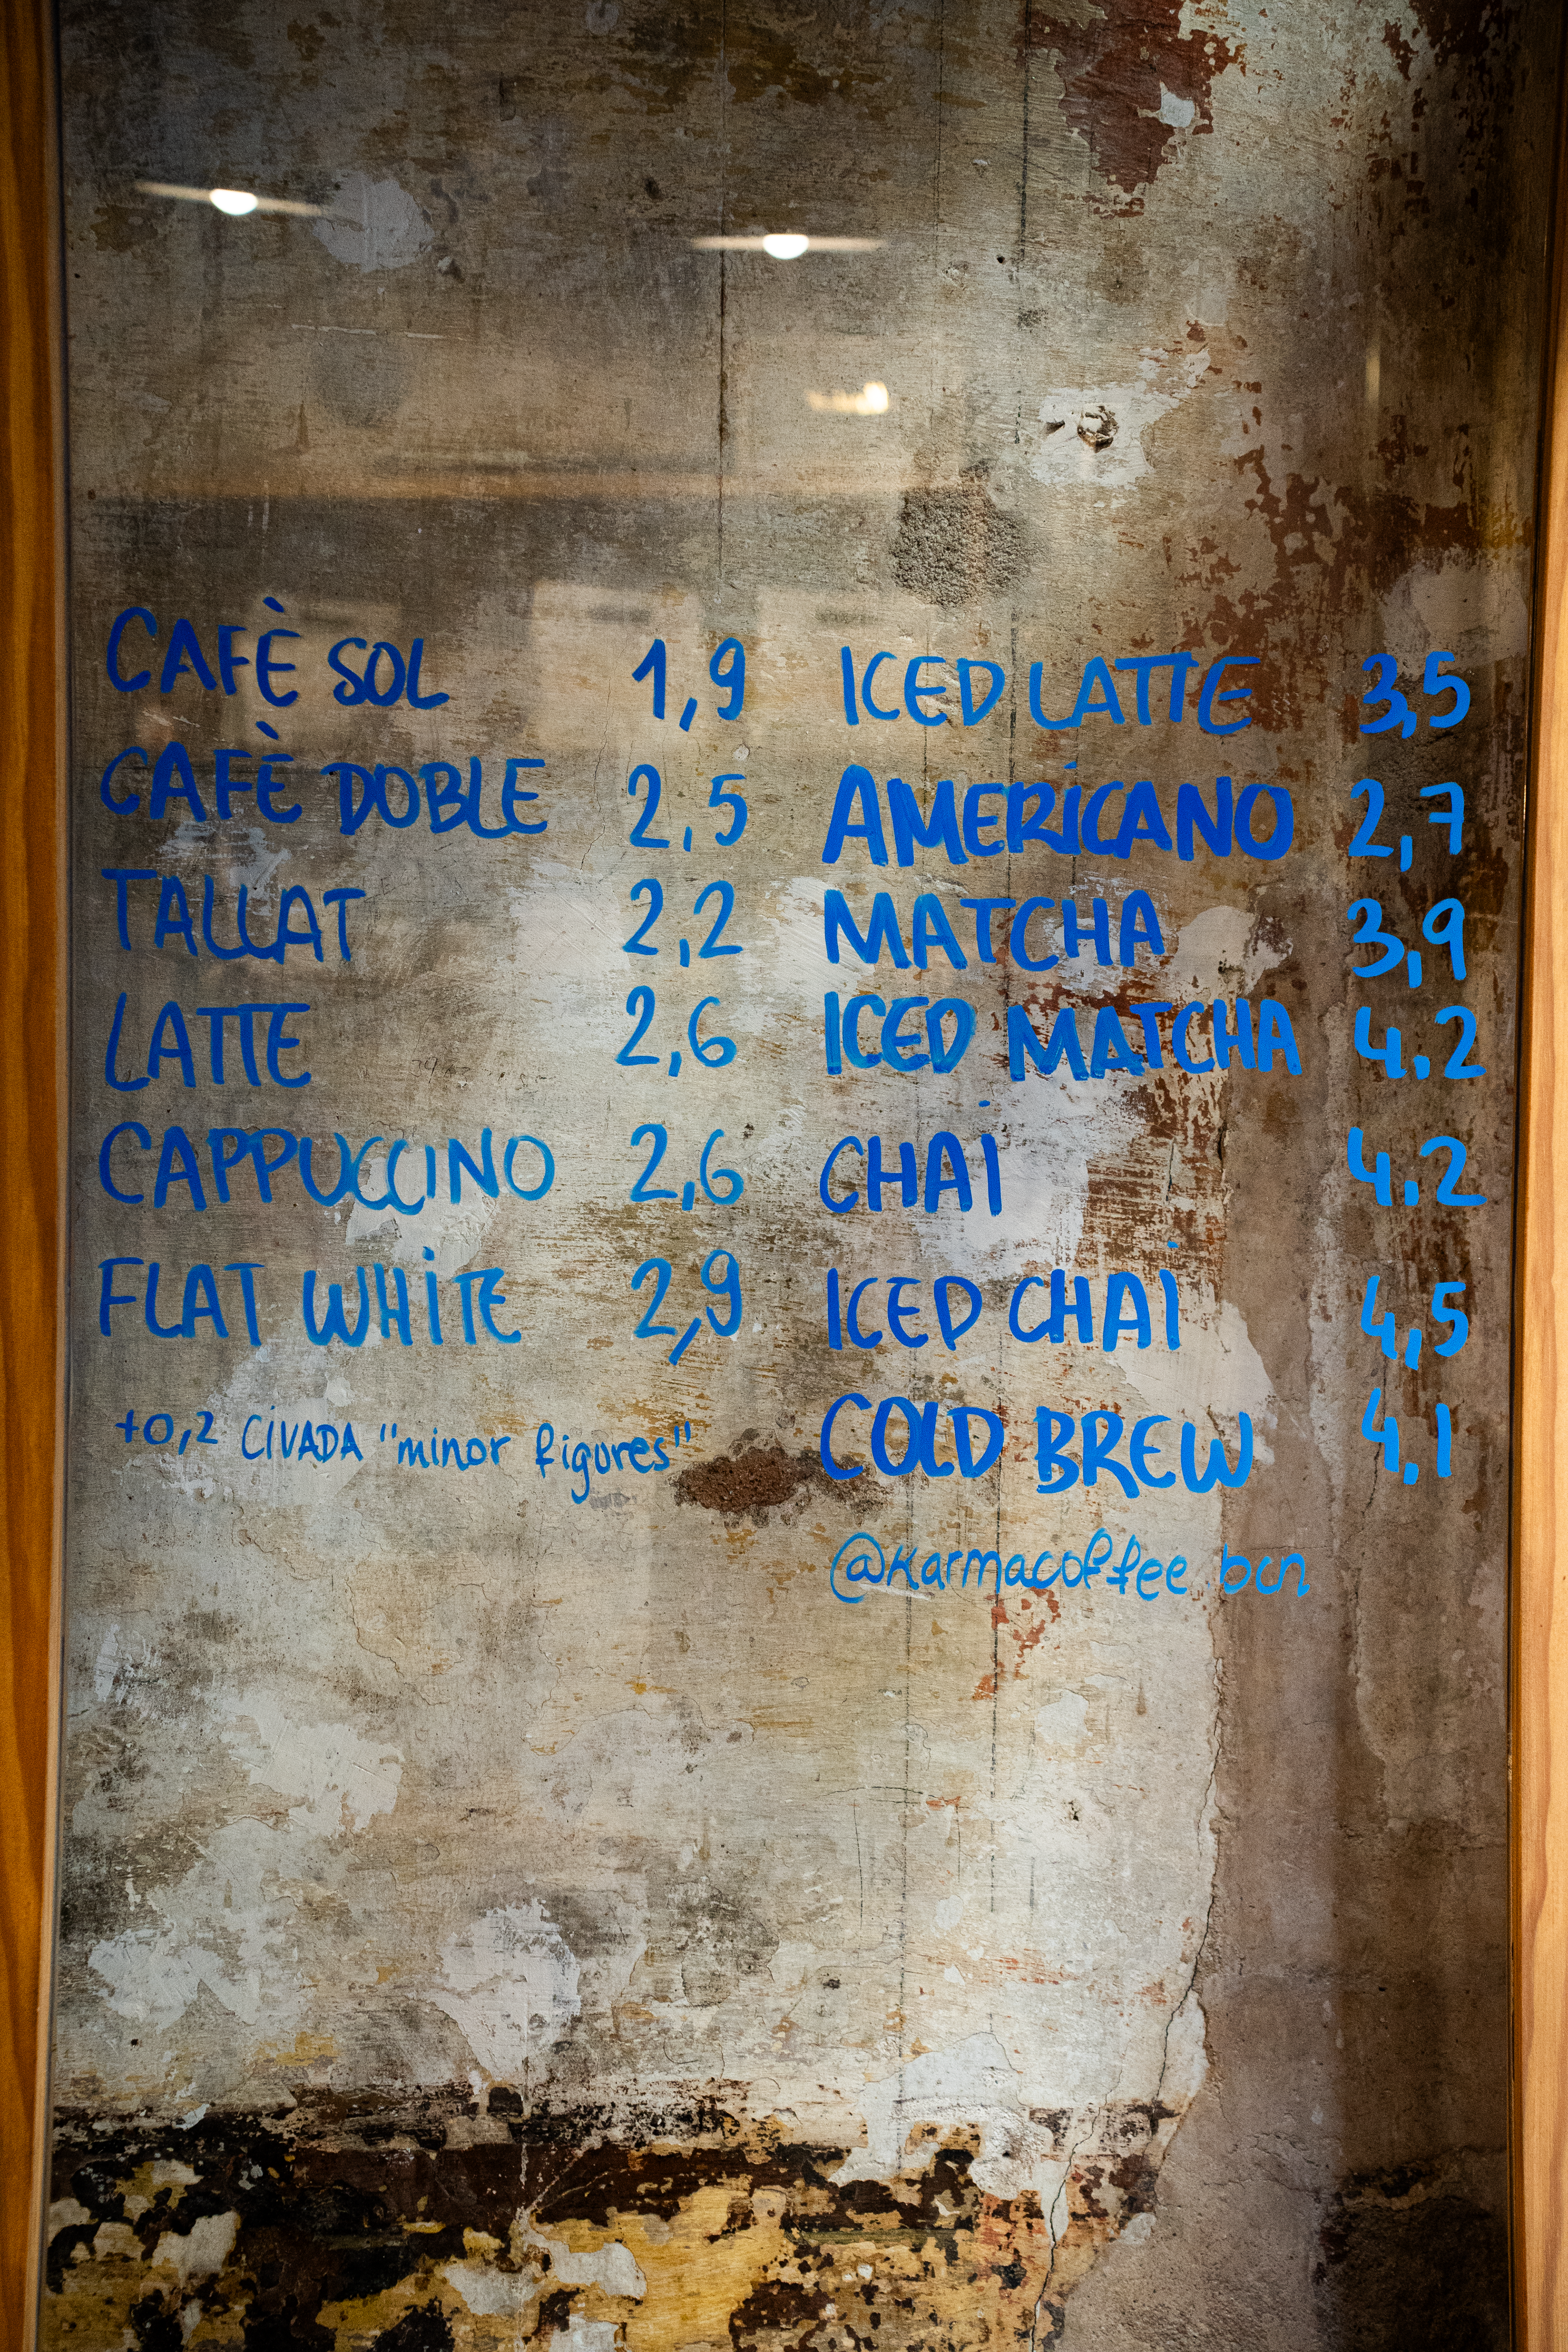 CAFÈ SOL 1,9
CAFÈ DOBLE 2,5
TALLAT 2,2
LATTE 2,6
CAPPUCCINO 2,6
FLAT WHITE 2,9
+0,2 CIVADA "minor figures"
ICED LATTE 3,5
AMERICANO 2,7
MATCHA 3,9
ICED MATCHA 4,2
CHAI 4,2
ICED CHAI 4,5
COLD BREW 4,1
@karmacoffee.bcn